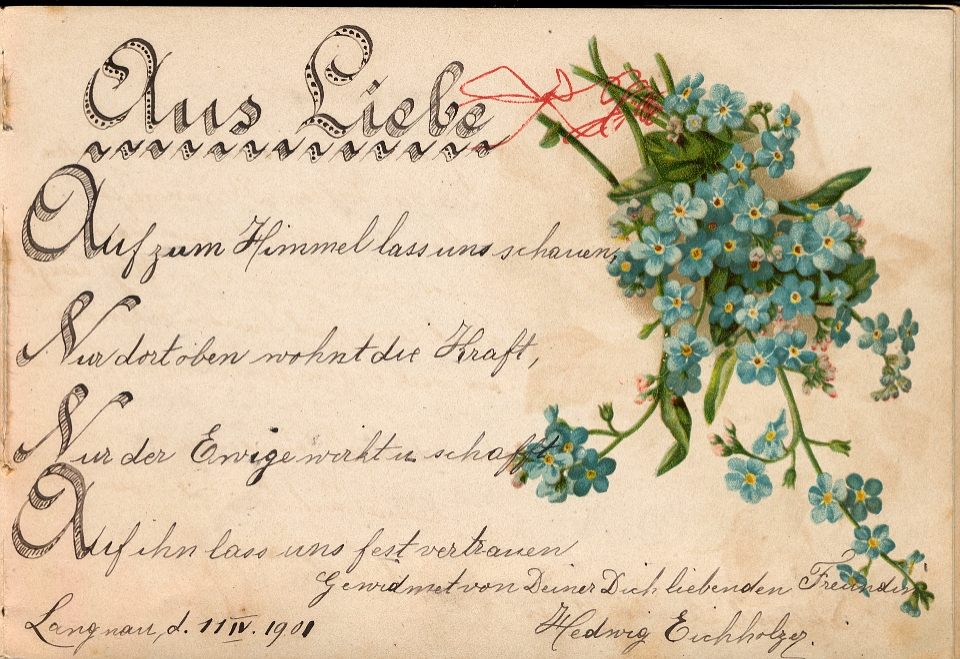 Aus Liebe
Auf zum Himmel lass uns schauen,
Nur dort oben wohnt die Kraft,
Nur der Ewige wirkt u schafft
Auf ihn lass uns fest vertrauen
Gewidmet von Deiner Dich liebenden Freundin
Langnau, d. 11 IV. 1901 Hedwig Eichholzer.